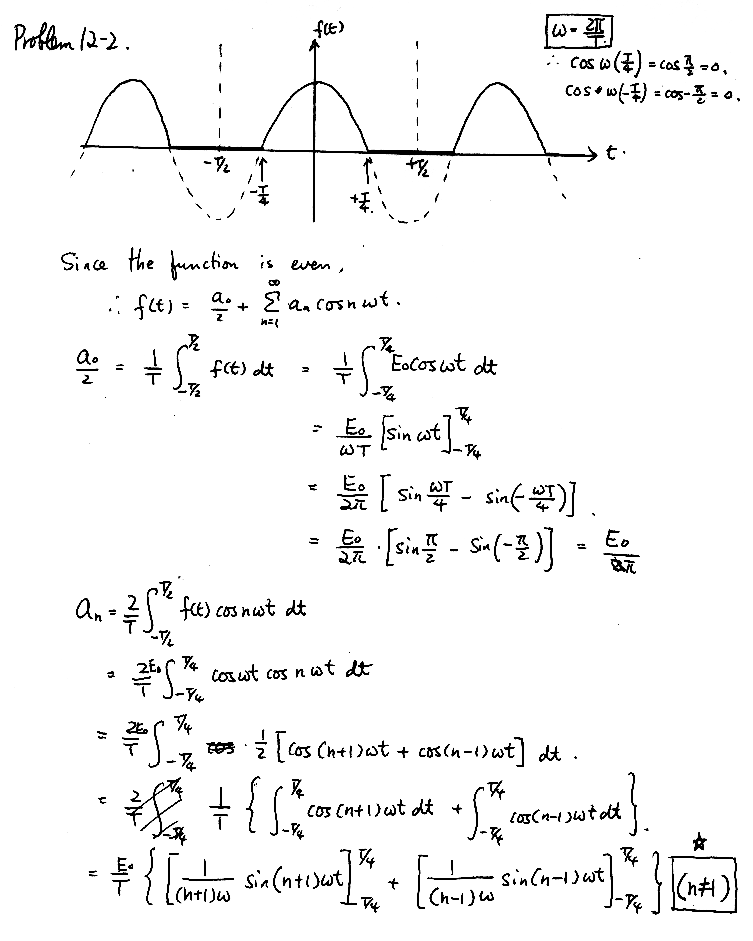 Problem 12-2.
f(t)
ω = 2π/T
∴ cos ω(T/4) = cos π/2 = 0,
cos ω(-T/4) = cos -π/2 = 0.
-T/2 -T/4 +T/4 +T/2 t.
Since the function is even,
∴ f(t) = a₀/2 + Σ_{n=1}^{∞} aₙ cos nωt.
a₀/2 = 1/T ∫_{-T/2}^{T/2} f(t) dt = 1/T ∫_{-T/4}^{T/4} E₀cos ωt dt
= E₀/ωT [sin ωt]_{-T/4}^{T/4}
= E₀/2π [sin ωT/4 - sin(-ωT/4)].
= E₀/2π · [sin π/2 - sin(-π/2)] = E₀/π
aₙ = 2/T ∫_{-T/2}^{T/2} f(t) cos nωt dt
= 2E₀/T ∫_{-T/4}^{T/4} cos ωt cos nωt dt
= 2E₀/T ∫_{-T/4}^{T/4} · 1/2 [cos (n+1)ωt + cos(n-1)ωt] dt.
= 1/T { ∫_{-T/4}^{T/4} cos(n+1)ωt dt + ∫_{-T/4}^{T/4} cos(n-1)ωt dt }.
= E₀/T { [1/(n+1)ω sin(n+1)ωt]_{-T/4}^{T/4} + [1/(n-1)ω sin(n-1)ωt]_{-T/4}^{T/4} } ☆ (n≠1)